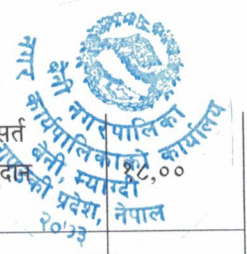 बेनी नगरपालिका
नगर कार्यपालिकाको कार्यालय
बेनी, म्याग्दी
गण्डकी प्रदेश, नेपाल
२०७३
सर्त
दान
१८,००